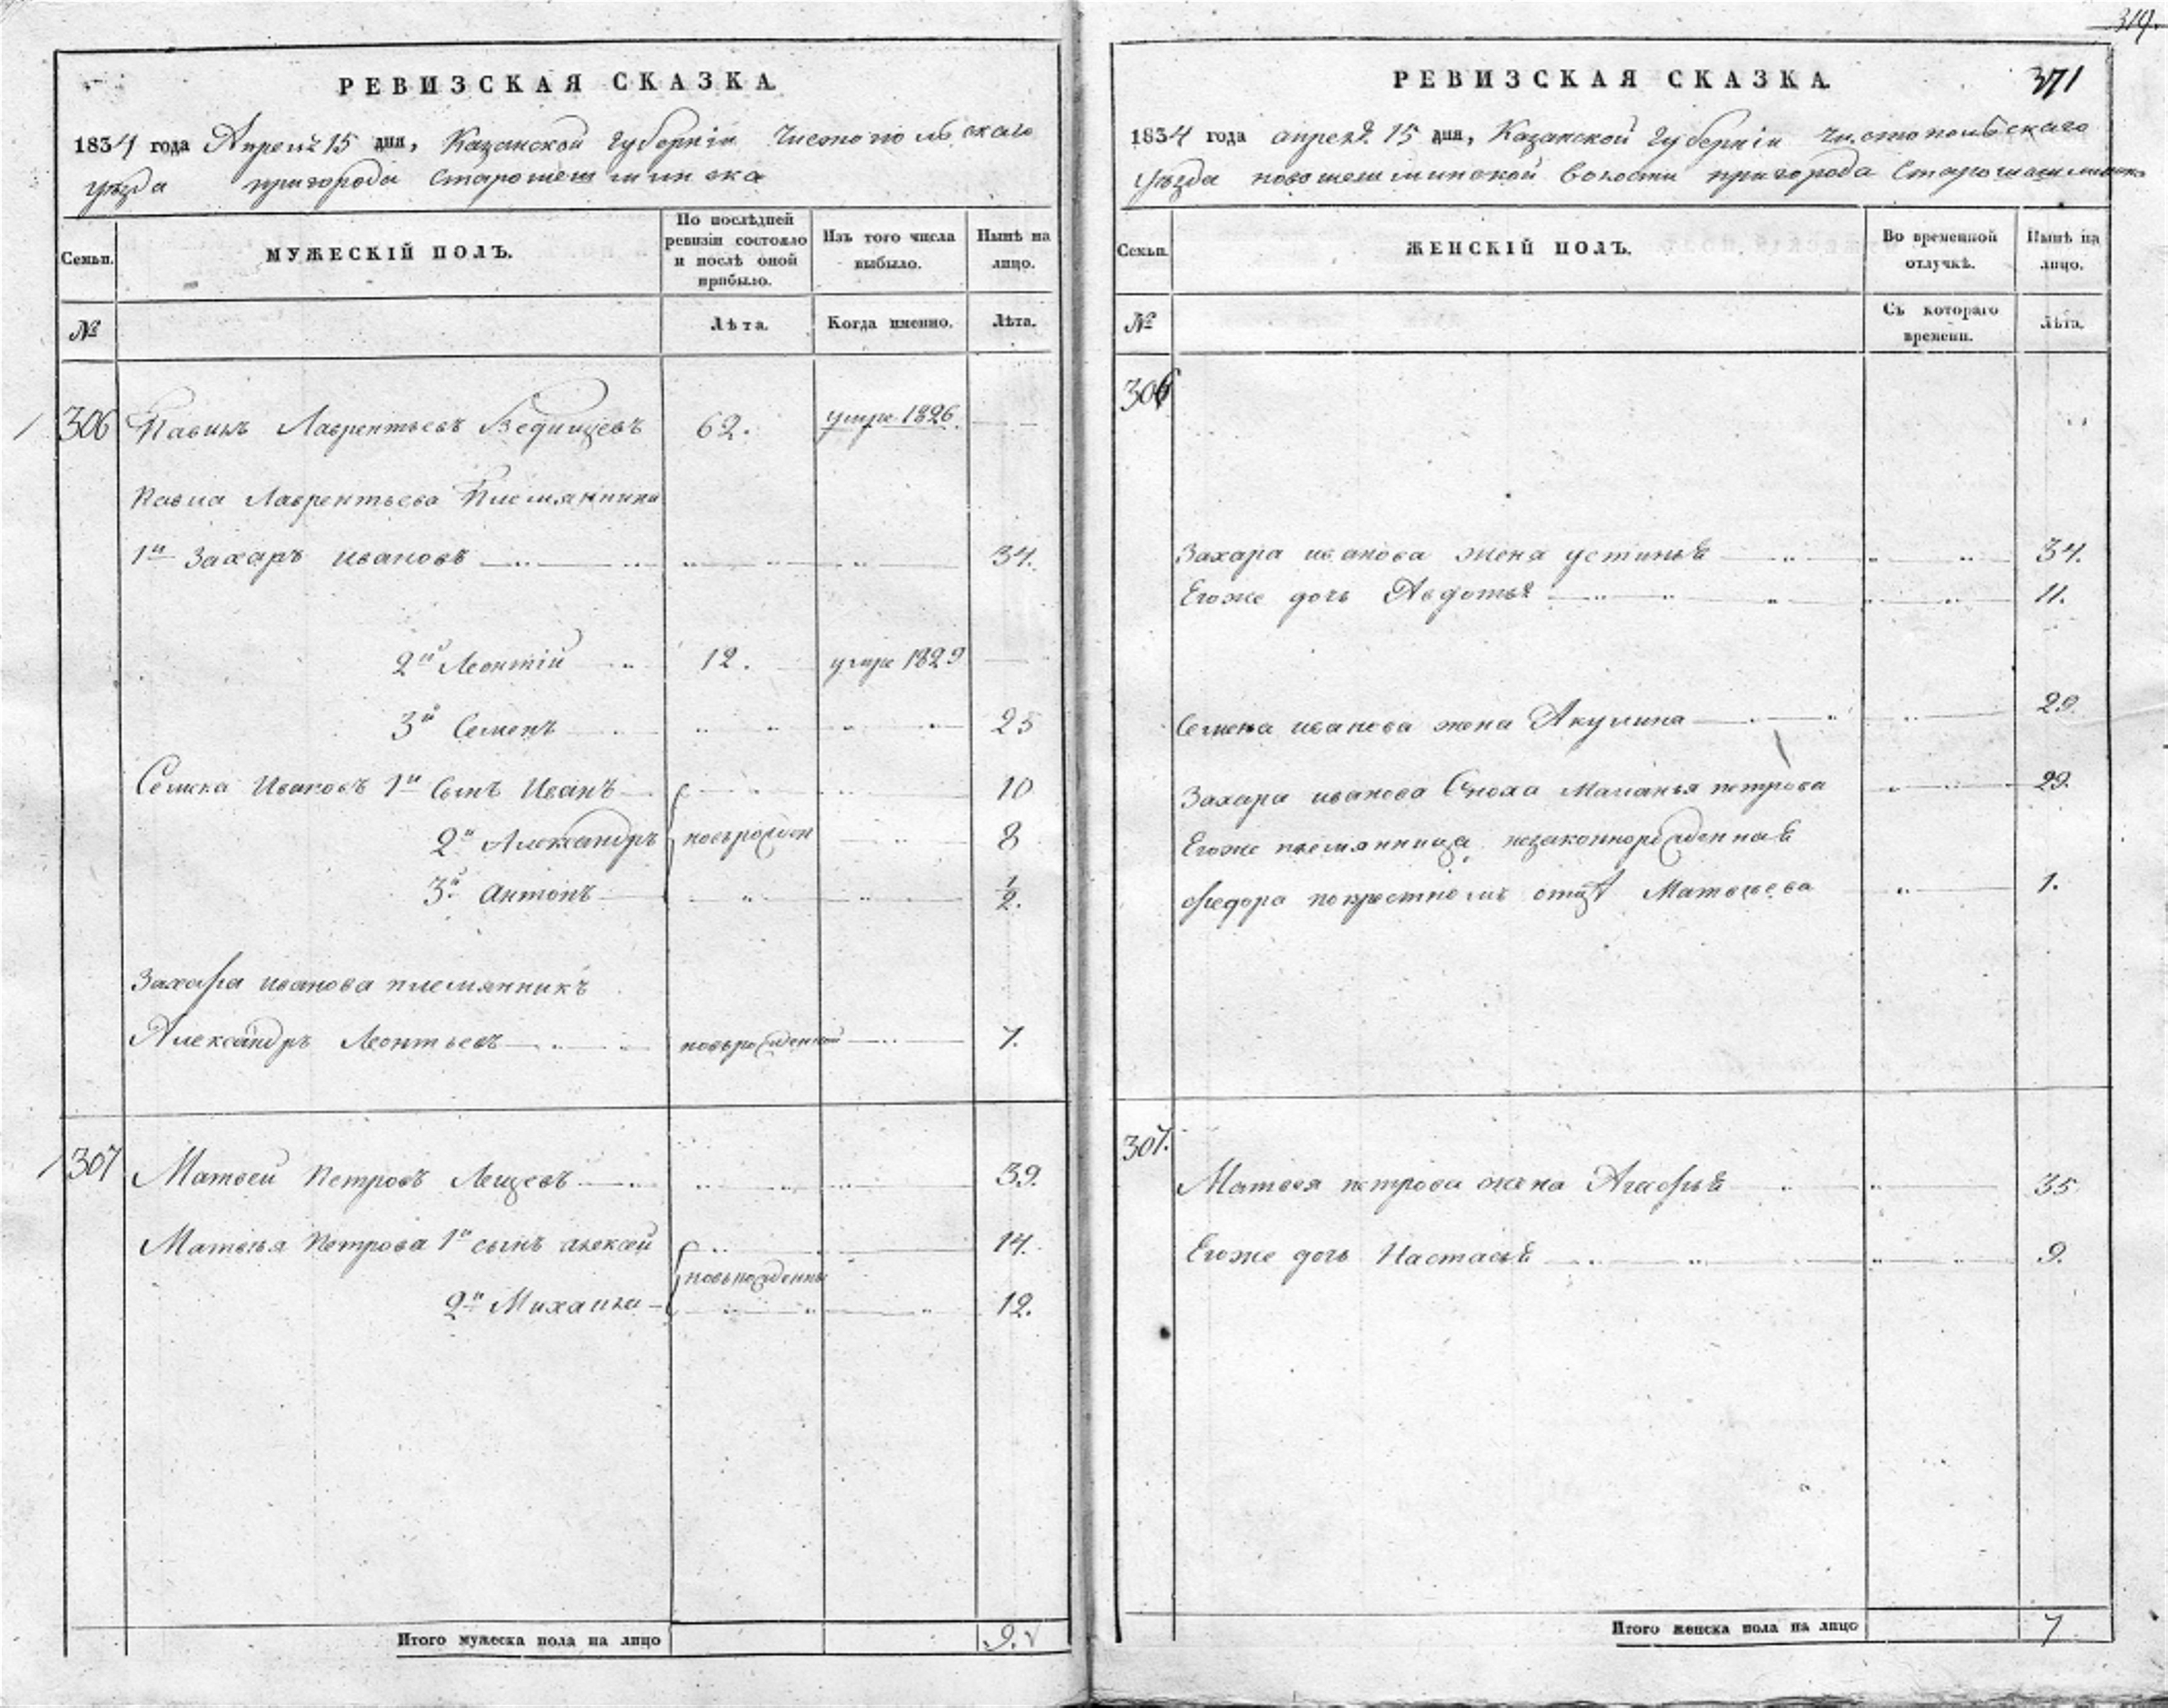 319.
РЕВИЗСКАЯ СКАЗКА
1834 года Апреля 15 дня, Казанской Губерніи Чистопольскаго
уѣзда пригорода Старошешминска
Семьи. МУЖЕСКІЙ ПОЛЪ. По послѣдней ревизіи состояло и послѣ оной прибыло. Изъ того числа выбыло. Нынѣ на лицо.
№ Лѣта. Когда именно. Лѣта.
306 Павилъ Лаврентьевъ Ведищевъ 62. умре 1826
Павла Лаврентьева Племянники
1й Захаръ Ивановъ 34.
2й Леонтій 12. умре 1829
3й Семенъ 25
Семена Ивановъ 1й Сынъ Иванъ 10
2й Александръ новорожден 8
3й Антонъ 1/2.
Захара иванова племянникъ
Александръ Леонтьевъ новорожденной 7.
307 Матвей Петровъ Лещевъ 39.
Матвья Петрова 1й сынъ алексей 14.
новорожденны
2й Михаила 12.
Итого мужеска пола на лицо 9.
РЕВИЗСКАЯ СКАЗКА 371
1834 года апреля 15 дня, Казанской Губерніи Чистопольскаго
Уѣзда новошешминской волости пригорода Старошешминска
Семьи. ЖЕНСКІЙ ПОЛЪ. Во временной отлучкѣ. Нынѣ на лицо.
№ Съ котораго времени. Лѣта.
306
Захара иванова жена устинья 34.
Егоже дочь Авдотья 11.
Семена иванова жена Акулина 29.
Захара иванова Сноха Маланья петрова 29.
Егоже племянница незаконнорожденная
Федора покрестному отцу Матвеева 1.
307.
Матвея петрова жена Агафья 35
Егоже дочь Настасья 9.
Итого женска пола на лицо 7